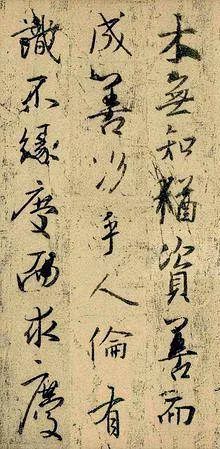 木無知猶資善而
成善况乎人倫有
識不緣慶而求慶